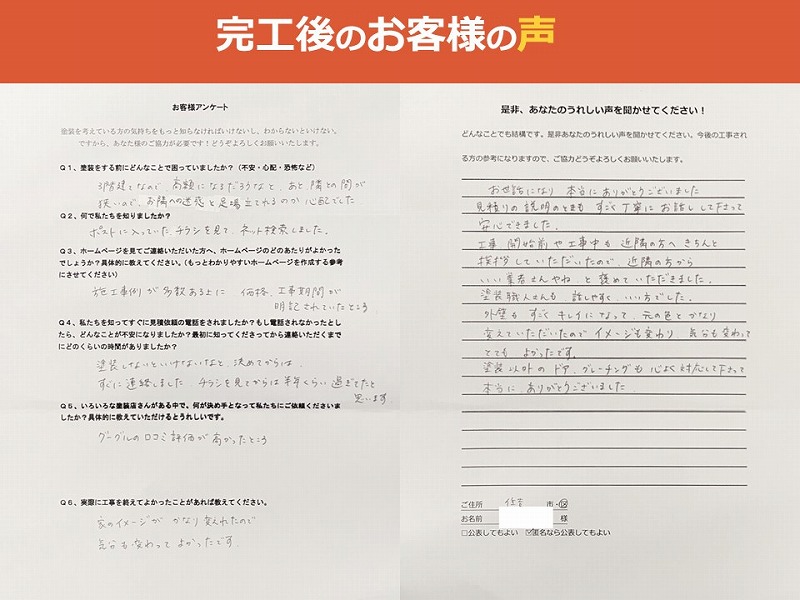 完工後のお客様の声
お客様アンケート
塗装を考えている方の気持ちをもっと知らなければいけないし、わからないといけない。
ですから、あなた様のご協力が必要です！どうぞよろしくお願いいたします。
Q１、塗装をする前にどんなことで困っていましたか？（不安・心配・恐怖など）
3階建てなので 高額になるだろうなと、あと 隣との間が
狭いので、お隣への迷惑と足場立てれるのか 心配でした
Q２、何で私たちを知りましたか？
ポストに入っていたチラシを見て、ネット検索しました。
Q３、ホームページを見てご連絡いただいた方へ、ホームページのどのあたりがよかった
でしょうか？具体的に教えてください。（もっとわかりやすいホームページを作成する参考
にさせてください）
施工事例が多数ある上に 価格、工事期間が
明記されていたところ
Q４、私たちを知ってすぐに見積依頼の電話をされましたか？もし電話されなかったとし
たら、どんなことが不安になりましたか？最初に知ってくださってから連絡いただくまで
にどのくらいの時間がありましたか？
塗装しないといけないなと、決めてからは、
すぐに連絡しました。チラシを見てからは半年くらい過ぎてたと
思います
Q５、いろいろな塗装店さんがある中で、何が決め手となって私たちにご依頼くださいま
したか？具体的に教えていただけるとうれしいです。
グーグルの口コミ評価が高かったところ
Q６、実際に工事を終えてよかったことがあれば教えてください。
家のイメージが かなり変えれたので
気分も変わって よかったです。
是非、あなたのうれしい声を聞かせてください！
どんなことでも結構です。是非あなたのうれしい声を聞かせてください。今後の工事され
る方の参考になりますので、ご協力どうぞよろしくお願いいたします。
お世話になり 本当にありがとうございました
見積りの説明のときも すごく丁寧にお話し して下さって
安心できました。
工事 開始前や工事中も 近隣の方へ きちんと
挨拶していただいたので、近隣の方から
いい業者さんやね と 褒めて いただきました。
塗装職人さんも 話しやすく、いい方でした。
外壁も すごく キレイになって、元の色と かなり
変えていただいたので イメージも変わり 気分も変わって
とても よかったです。
塗装以外の ドア、グレーチングも 心よく対応して下さって
本当に、ありがとうございました。
ご住所 住吉 市・区
お名前 様
□公表してもよい ☑匿名なら公表してもよい